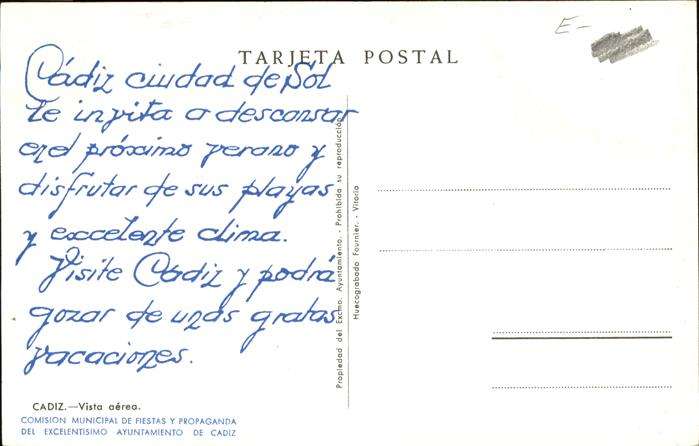 E-
TARJETA POSTAL
Cádiz ciudad de Sol
te invita a descansar
en el próximo verano y
disfrutar de sus playas
y excelente clima.
Visite Cádiz y podrá
gozar de unas gratas
vacaciones.
Propiedad del Excmo. Ayuntamiento. - Prohibida su reproducción
Huecograbado Fournier. - Vitoria
CADIZ.—Vista aérea.
COMISION MUNICIPAL DE FIESTAS Y PROPAGANDA
DEL EXCELENTISIMO AYUNTAMIENTO DE CADIZ